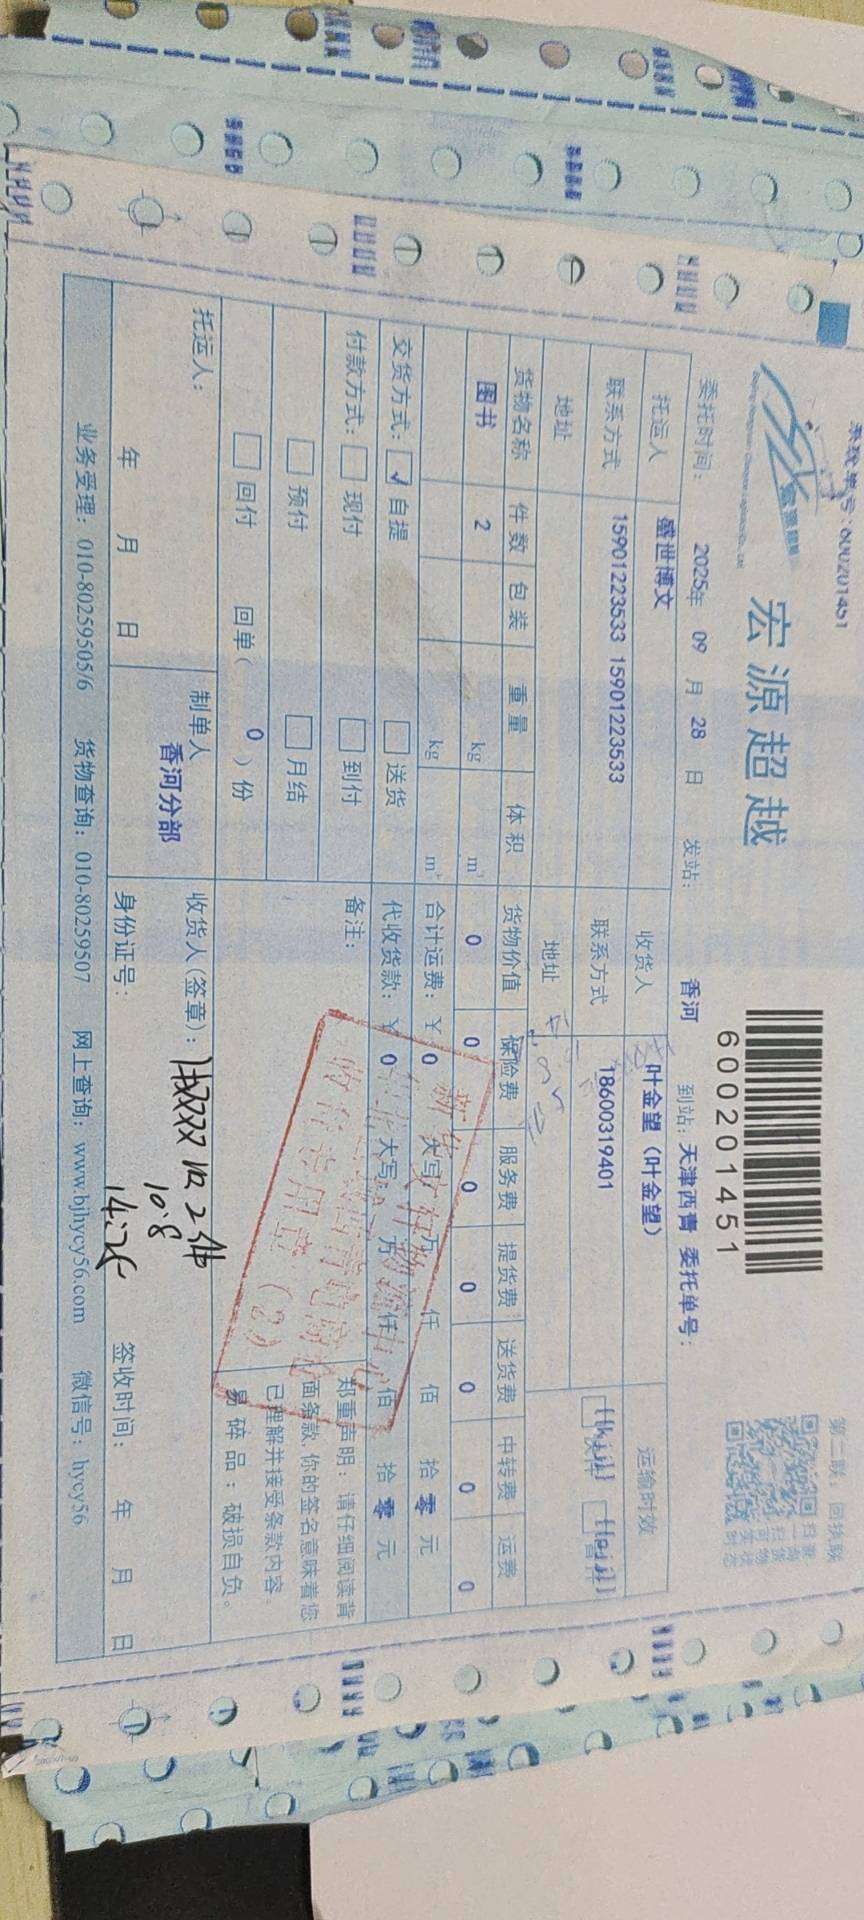 系统单号:600201451
宏源超越
600201451
第二联:回执联
委托时间: 2025年 09 月 28 日 发站: 香河 到站: 天津西青 委托单号:
托运人 盛世博文 收货人 叶金望 (叶金望) 运输时效
联系方式 15901223533 15901223533 联系方式 18600319401
地址 地址
货物名称 件数 包装 重量 体积 货物价值 保险费 服务费 提货费 送货费 中转费 运费
图书 2 kg m³ 0 0 0 0 0 0 0
kg m³ 合计运费: ¥ 0 大写 万 仟 佰 拾 零 元
交货方式: ☑ 自提 □ 送货 代收货款: ¥ 0 大写: 万 仟 佰 拾 零 元
付款方式: □ 现付 □ 到付 备注:
□ 预付 □ 月结
□ 回付 回单( 0 )份
郑重声明: 请仔细阅读背
面条款,你的签名意味着您
已理解并接受条款内容。
易碎品:破损自负。
收货专用章 (2)
托运人: 制单人 收货人(签章): 2件
香河分部 10.8
年 月 日 身份证号: 签收时间: 年 月 日
业务受理: 010-80259505/6 货物查询: 010-80259507 网上查询: www.bjhycy56.com 微信号: hycy56